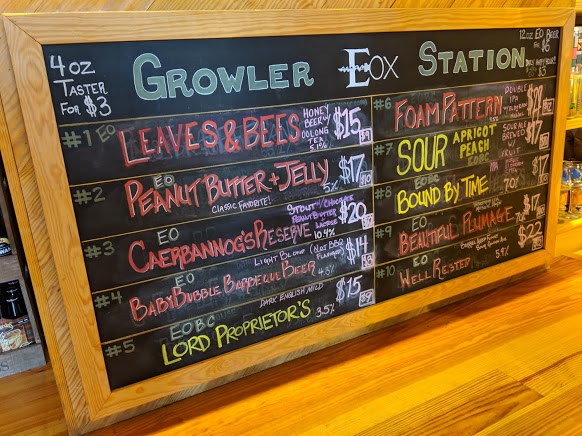 4oz
TASTER
FOR $3
GROWLER EOX STATION
12oz EO BEER
$6
$5
#1 EO LEAVES & BEES HONEY BEER W/ OOLONG TEA 5.1% $15 $9
#2 EO PEANUT BUTTER + JELLY 5% $17 $10
CLASSIC FAVORITE!
#3 EO CAERBANNOG'S RESERVE STOUT W/ CHOCOLATE PEANUT BUTTER LACTOSE 10.4% $20
#4 EO BABY BUBBLE BARBEQUE BEER LIGHT BLOND (NOT BBQ FLAVORED) 4.8% $14
#5 EOBC LORD PROPRIETOR'S DARK ENGLISH MILD 3.5% $15 $9
#6 FOAM PATTERN DOUBLE IPA
#7 SOUR APRICOT PEACH SOUR ALE W/ FRUIT $17
EOBC
#8 BOUND BY TIME IPA 7% $17
#9 EO BEAUTIFUL PLUMAGE $17
#10 EO WELL RESTED 5.9% $22